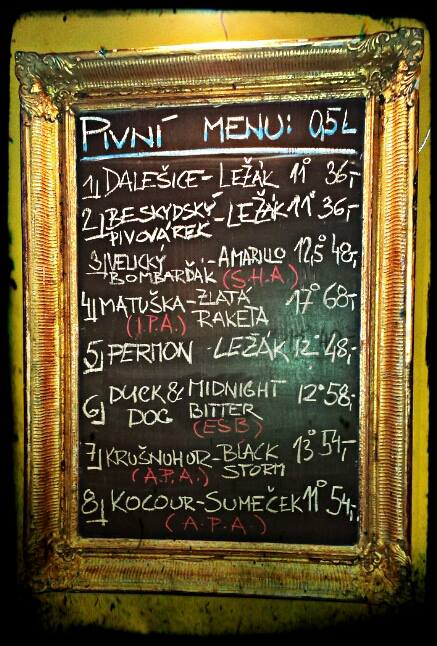 PIVNÍ MENU: 0,5L
1) DALEŠICE - LEŽÁK 11° 36,-
2) BESKYDSKÝ PIVOVÁREK - LEŽÁK 11° 36,-
3) VELICKÝ BOMBARĎÁK - AMARILLO (S.H.A.) 12,5° 48,-
4) MATUŠKA - ZLATÁ RAKETA (I.P.A.) 17° 68,-
5) PERMON - LEŽÁK 12° 48,-
6) DUCK & DOG MIDNIGHT BITTER (ESB) 12° 58,-
7) KRUŠNOHOR - BLACK STORM (A.P.A.) 13° 54,-
8) KOCOUR - SUMEČEK 11° 54,-
(A.P.A.)